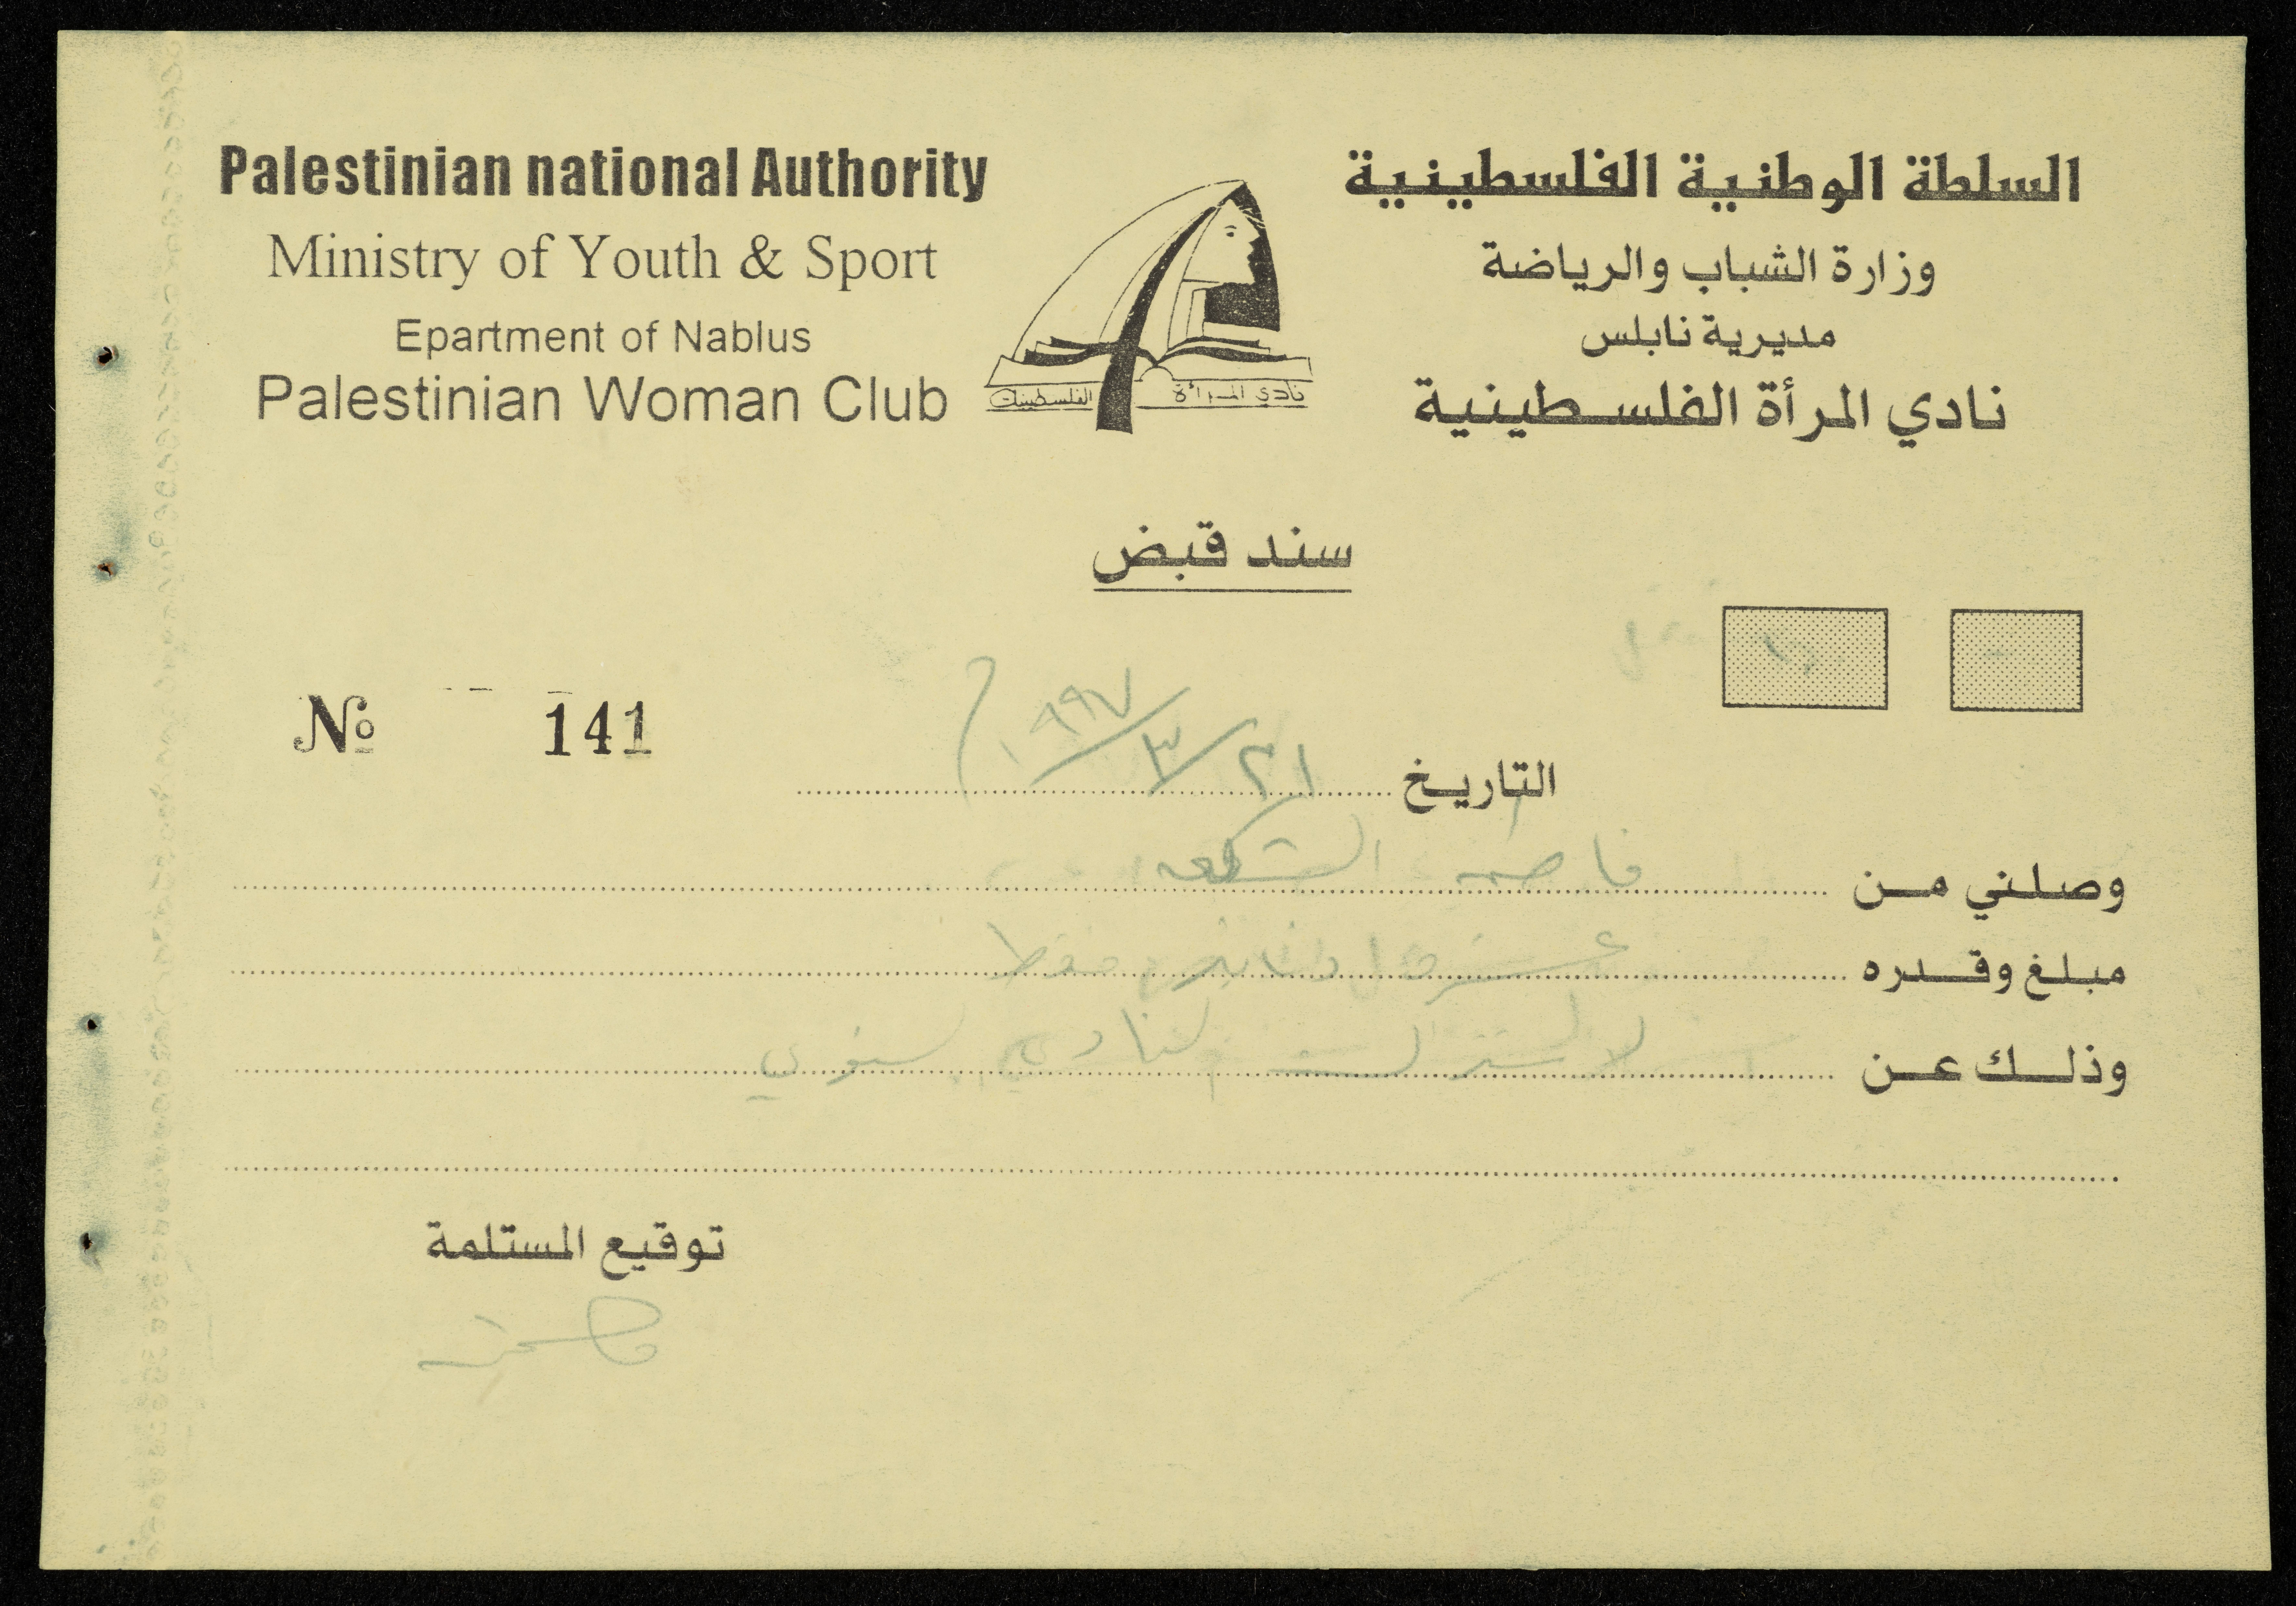 Palestinian national Authority
Ministry of Youth & Sport
Epartment of Nablus
Palestinian Woman Club
السلطة الوطنية الفلسطينية
وزارة الشباب والرياضة
مديرية نابلس
نادي المرأة الفلسطينية
نادي المرأة الفلسطينية
سند قبض
№ 141
التاريخ ٢١/٣/١٩٩٧م
وصلني من فاطمة الشكعه
مبلغ وقدره عشرة دنانير فقط
وذلك عن لاشتراك لنادي سنوي
توقيع المستلمة